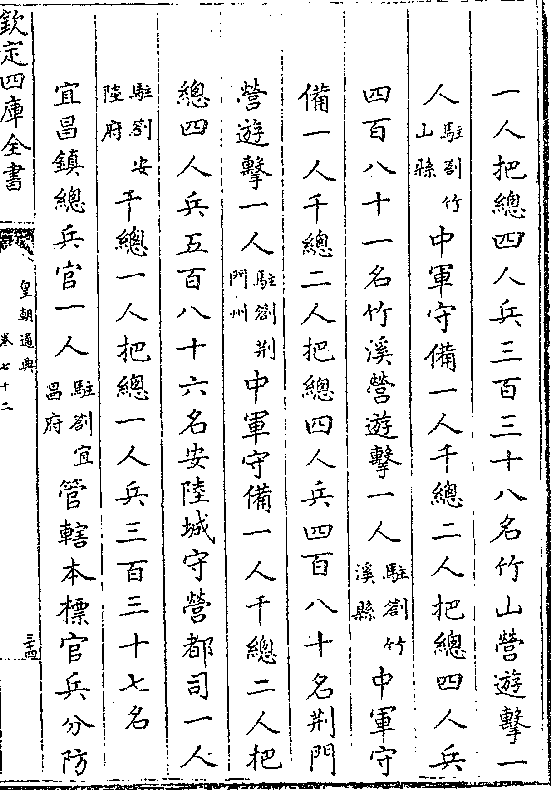 一人把總四人兵三百三十八名竹山營遊擊一
人駐劄竹山縣中軍守備一人千總二人把總四人兵
四百八十一名竹溪營遊擊一人駐劄竹溪縣中軍守
備一人千總二人把總四人兵四百八十名荆門
營遊擊一人駐劄荆門州中軍守備一人千總二人把
總四人兵五百八十六名安陸城守營都司一人
駐劄安陸府千總一人把總一人兵三百三十七名
宜昌鎮總兵官一人駐劄宜昌府管轄本標官兵分防
欽定四庫全書
皇朝通典
卷七十二